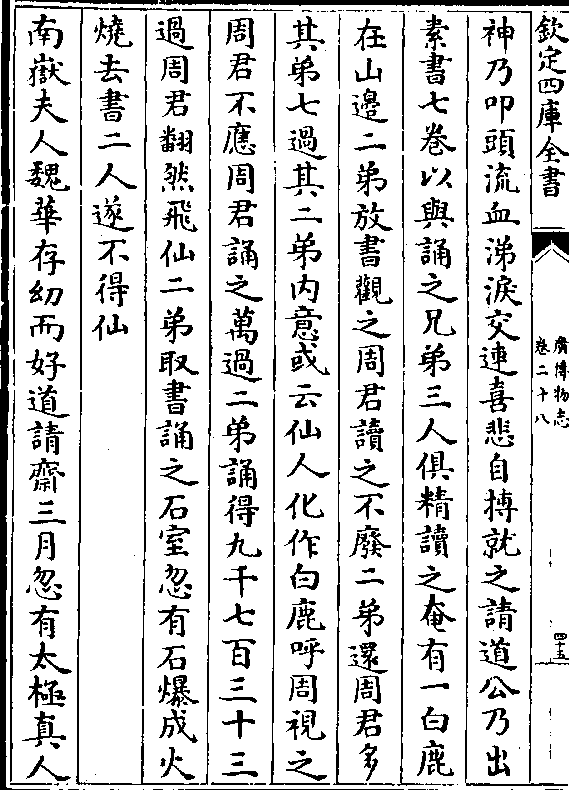 欽定四庫全書
廣博物志
卷二十八
四十五
神乃叩頭流血涕淚交連喜悲自摶就之請道公乃出
素書七卷以與誦之兄弟三人俱精讀之奄有一白鹿
在山邊二弟放書觀之周君讀之不廢二弟還周君多
其弟七過其二弟内意或云仙人化作白鹿呼周視之
周君不應周君誦之萬過二弟誦得九千七百三十三
過周君翻然飛仙二弟取書誦之石室忽有石爆成火
燒去書二人遂不得仙
南嶽夫人魏華存幼而好道請齋三月忽有太極真人